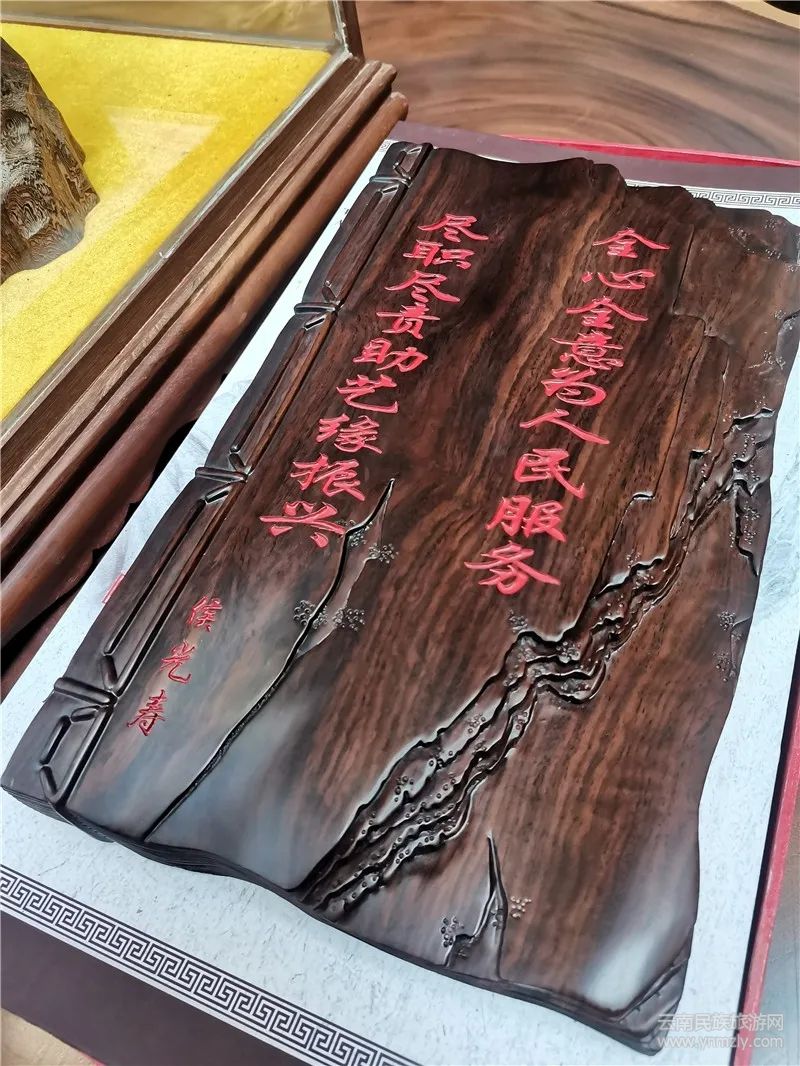 全心全意为人民服务
尽职尽责助艺缘振兴
侯光寿
云南民族旅游网
www.ynmzly.com